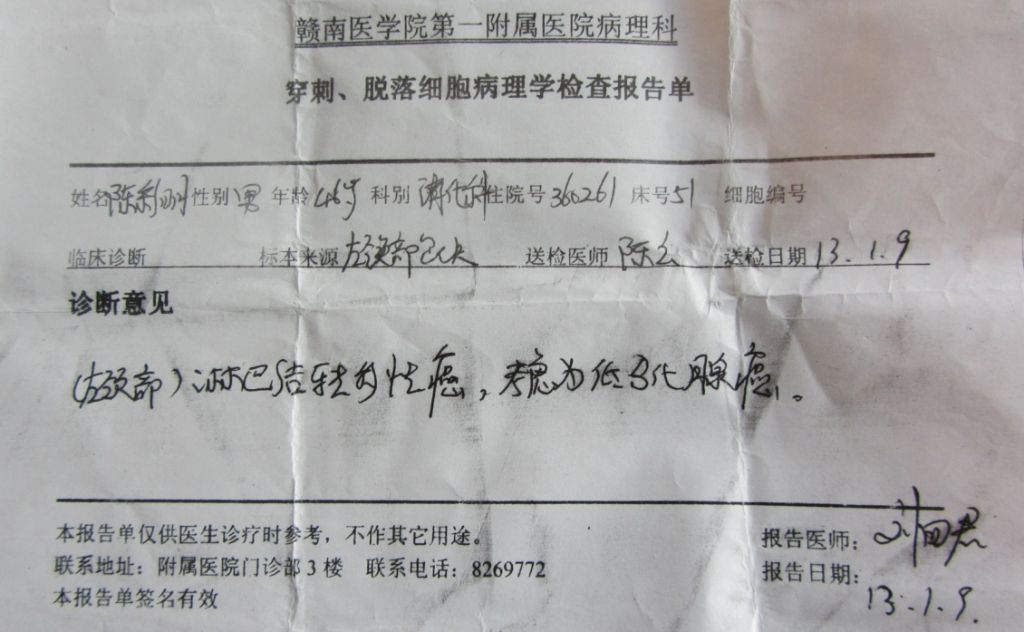 赣南医学院第一附属医院病理科
穿刺、脱落细胞病理学检查报告单
姓名 陈 性别 男 年龄 46岁 科别 消化科 住院号 366261 床号 51 细胞编号
临床诊断 标本来源 左颈部包块 送检医师 陈 送检日期 13.1.9
诊断意见
(左颈部)淋巴结转移性癌,考虑为低分化腺癌。
本报告单仅供医生诊疗时参考，不作其它用途。 报告医师：
联系地址：附属医院门诊部 3 楼 联系电话：8269772 报告日期：
本报告单签名有效 13.1.9.